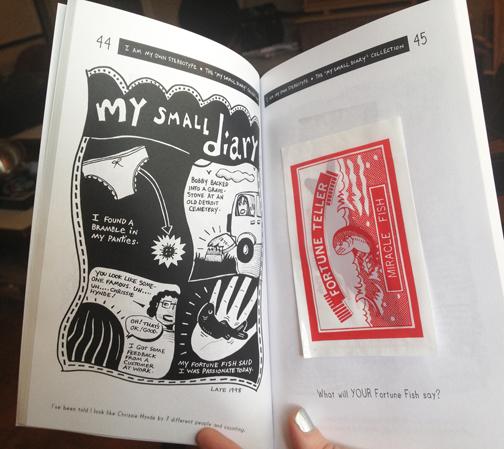 44
I AM MY OWN STEREOTYPE • THE "MY SMALL DIARY" COLLECTION
my SMALL diary
I FOUND A
BRAMBLE IN
MY PANTIES.
BOBBY BACKED
INTO A GRAVE-
STONE AT AN
OLD DETROIT
CEMETERY.
YOU LOOK LIKE SOME-
ONE FAMOUS. UH....
UH.... CHRISSIE
HYNDE!
OH! THAT'S
OK/GOOD.
I GOT SOME
FEEDBACK
FROM A
CUSTOMER
AT WORK.
MY FORTUNE FISH SAID
I WAS PASSIONATE TODAY.
LATE 1998
I've been told I look like Chrissie Hynde by 7 different people and counting.
I AM MY OWN STEREOTYPE • THE "MY SMALL DIARY" COLLECTION
45
FORTUNE TELLER
MIRACLE FISH
What will YOUR Fortune Fish say?